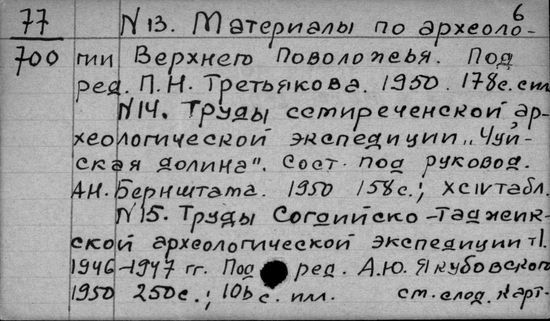 6
77 N13. Материалы по археоло-
700 гии Верхнего Поволожья. Под
ред. П.Н. Третьякова. 1950. 178с. ст
N14. Труды семиреченской ар-
хеологической экспедиции „Чуй-
ская долина". Сост. под руковод.
А.Н. Бернштама. 1950 158с.; XCIV табл.
N15. Труды Согдийско-Таджик-
ской археологической экспедиции т I.
1946-1947 гг. Под ред. А.Ю. Якубовского
1950 250с.; 106 с. илл. см. след. карт.